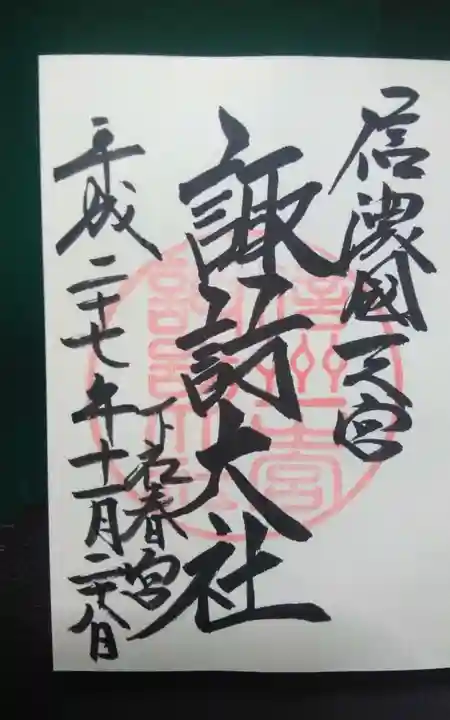 信濃國一之宮
諏訪大社
下社春宮
平成二十七年十一月二十八日